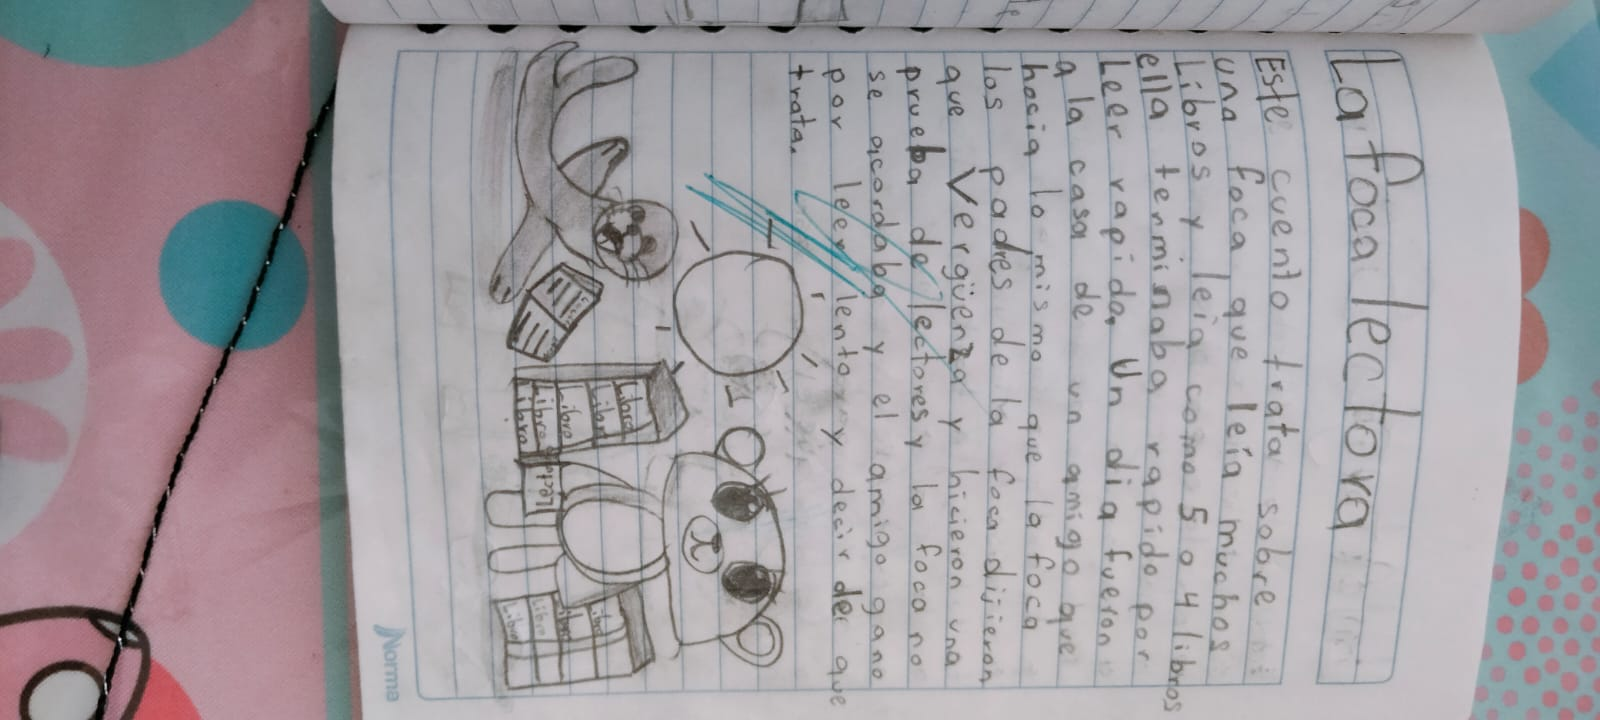 La foca lectora
Este cuento trata sobre
una foca que leía muchos
Libros y leia como 5 o 4 libros
ella terminaba rapido por
Leer rapido, Un dia fueron
a la casa de un amigo que
hacia lo mismo que la foca
los padres de la foca dijieron
que Vergüenza y hicieron una
prueba de lectores y la foca no
se acordaba y el amigo gano
por leer lento y decir de que
trata.
Libro
Libro
Libro
Libro
Libro
Libro
Libro
Libro
Libro
Norma